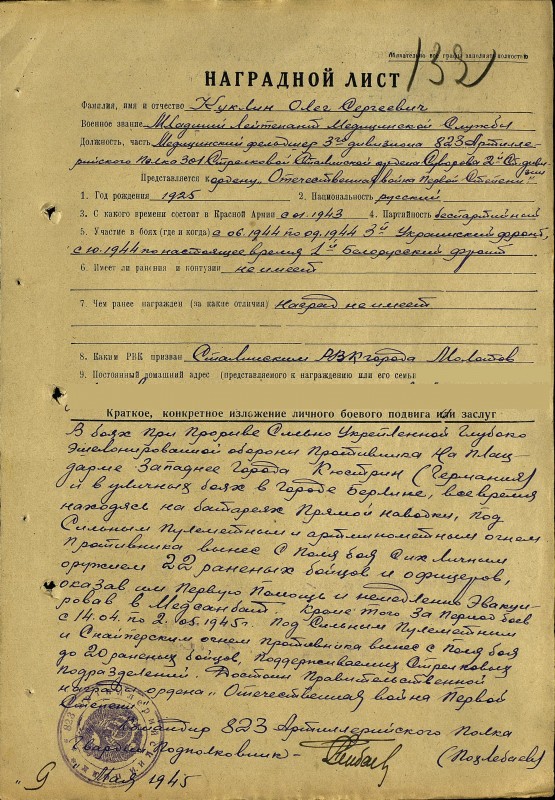 Желательно все графы заполнять полностью
132
НАГРАДНОЙ ЛИСТ
Фамилия, имя и отчество Куклин Олег Сергеевич
Военное звание Младший Лейтенант Медицинской Службы
Должность, часть Медицинский фельдшер 3го дивизиона 823 Артилле-
рийского Полка 301 Стрелковой Сталинской ордена Суворова 2й Ст. диви-
зии
Представляется к ордену „Отечественная война Первой Степени"
1. Год рождения 1925 2. Национальность русский
3. С какого времени состоит в Красной Армии с 01.1943 4. Партийность беспартийный
5. Участие в боях (где и когда) с 06.1944 по 09.1944 3й Украинский фронт,
с 10.1944 по настоящее время 1й Белорусский фронт
6. Имеет ли ранения и контузии не имеет
7. Чем ранее награжден (за какие отличия) наград не имеет
8. Каким РВК призван Сталинским РВК города Молотов
9. Постоянный домашний адрес (представляемого к награждению или его семьи
Краткое, конкретное изложение личного боевого подвига или заслуг
В боях при прорыве сильно укрепленной глубоко
эшелонированной обороны противника на плац-
дарме западнее города Кюстрин (Германия)
и в уличных боях в городе Берлине, все время
находясь на батареях прямой наводки, под
сильным пулеметным и артминометным огнем
противника вынес с поля боя с их личным
оружием 22 раненых бойцов и офицеров,
оказав им первую помощь и немедленно эвакуи-
ровав в Медсанбат. Кроме того за период боев
с 14.04. по 2.05.1945г. под сильным пулеметным
и снайперским огнем противника вынес с поля боя
до 20 раненых бойцов, поддерживаемых стрелковых
подразделений. Достоин Правительственной
награды ордена „Отечественная война Первой
Степени"
Командир 823 Артиллерийского Полка
Гвардии Подполковник -
(Позлебаев)
„9 Мая 1945